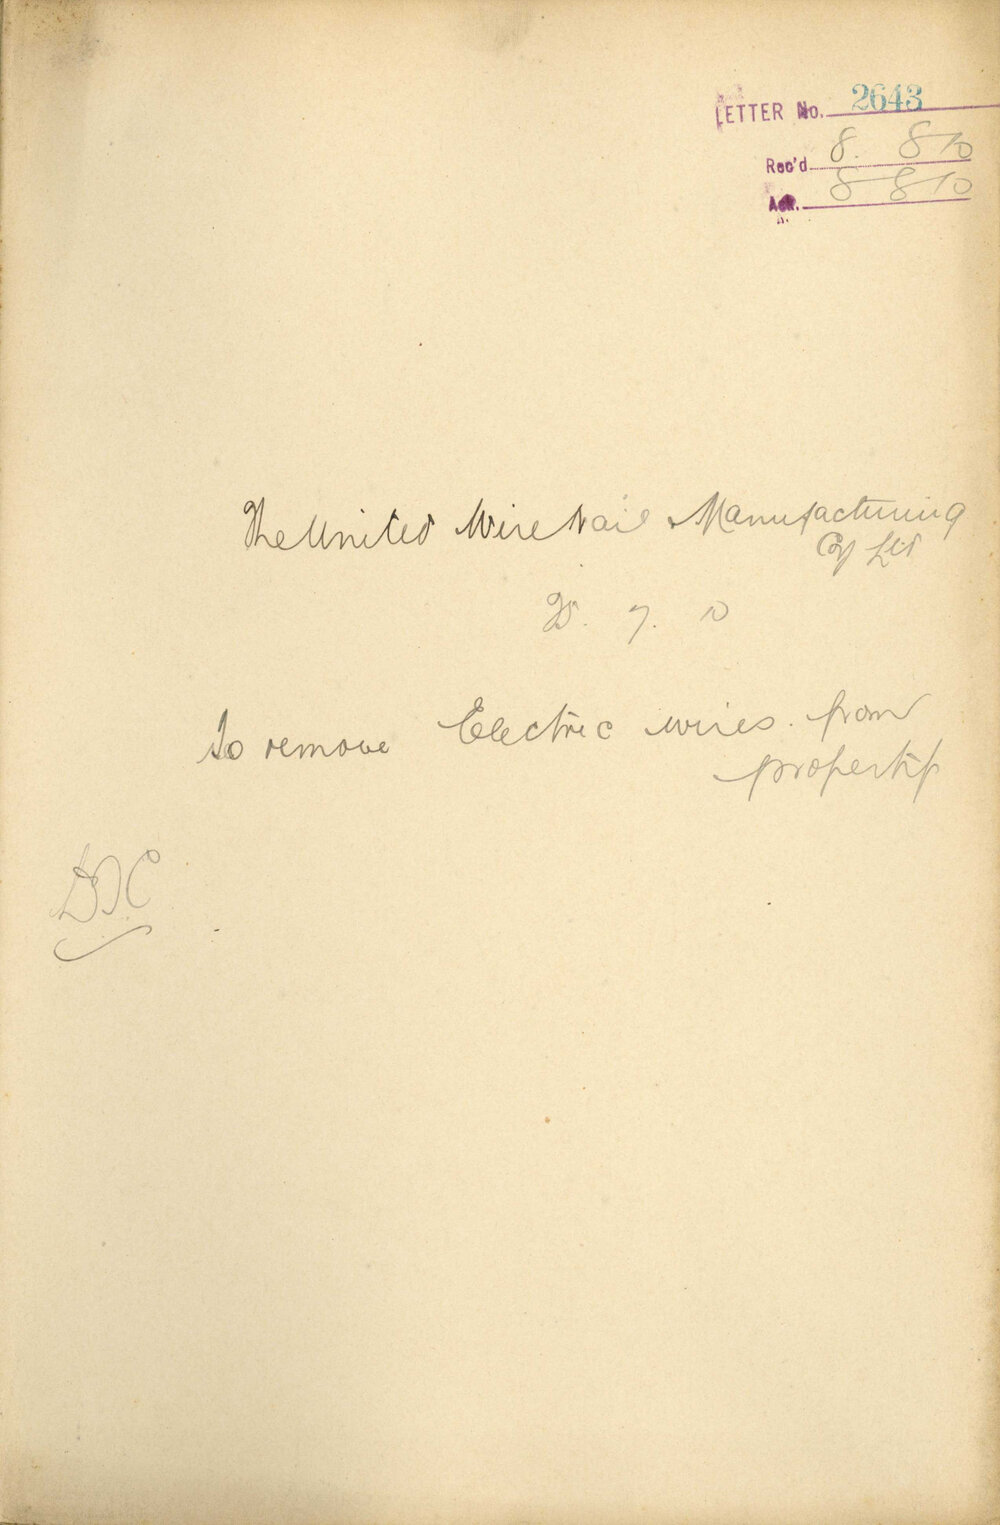 LETTER No. 2643
Rec'd 8. 8 10
Ack. 8 8 10
The United Wire Nail Manufacturing
Coy Ltd
25. 7. 10
To remove Electric wires from
property